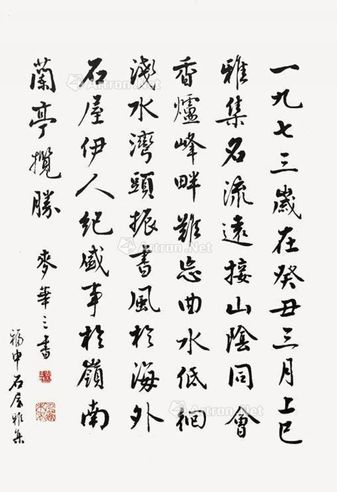 一九七三歲在癸丑三月上巳
雅集名流遠接山陰同會
香爐峰畔難忘曲水低徊
淺水灣頭振書風於海外
石屋伊人紀盛事於嶺南
蘭亭攬勝 麥華三書
福申石屋雅集
Artron.Net
Artron.Net
Artron.Net